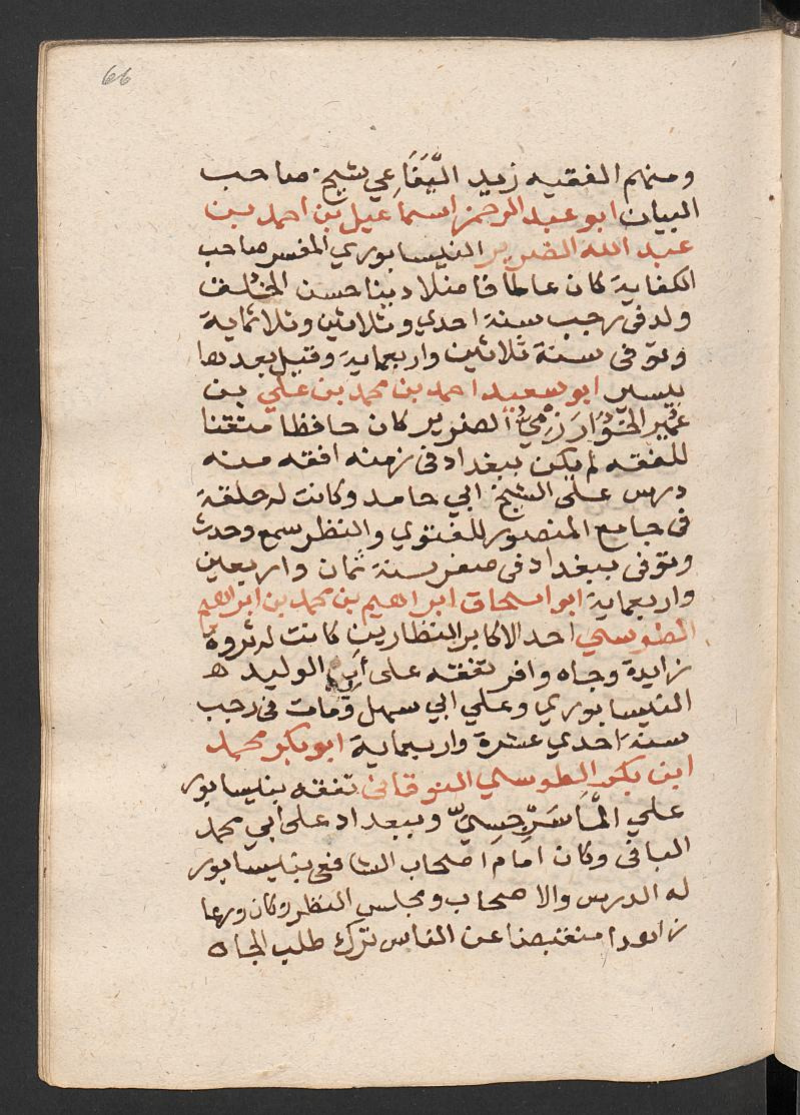 66
ومنهم الفقيه زيد اليَفَاعي شيخ صاحب
البيان ابو عبد الرحمن اسماعيل بن احمد بن
عبد الله الضرير النيسابوري المفسر صاحب
الكفاية كان عالما فاضلا دينا حسن الخُلف
ولد فى رجب سنة احدي وثلاثين وثلاثماية
وتوفى سنة ثلاثين واربعماية وقيل بعدها
بيسير ابو سعيد احمد بن محمد بن علي بن
نمير الخُوَارَزمي الضرير كان حافظا متقنا
للفقه لم يكن ببغداد فى زمنه افقه منه
درس على الشيخ ابي حامد وكانت له حلقة
فى جامع المنصور للفتوي والنظر سمع وحدث
وتوفى ببغداد فى صفر سنة ثمان واربعين
واربعماية ابو اسحاق ابراهيم بن محمد بن ابراهيم
الطوسي احد الاكابر النظارين كانت له ثروة
زايدة وجاه وافر تفقه على ابي الوليد
النيسابوري وعلي ابي سهل ومات فى رجب
سنة احدي عشرة واربعماية ابو بكر محمد
ابن بكر الطوسي النوقانى تفقه بنيسابور
علي المَاسَرْجِسِيّ وببغداد على ابي محمد
البافى وكان امام اصحاب الشافعى بنيسابور
له الدرس والاصحاب ومجلس النظر وكان ورعا
زاهدا منقبضا عن الناس ترك طلب الجاه